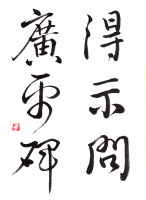 得示問
廣平碑